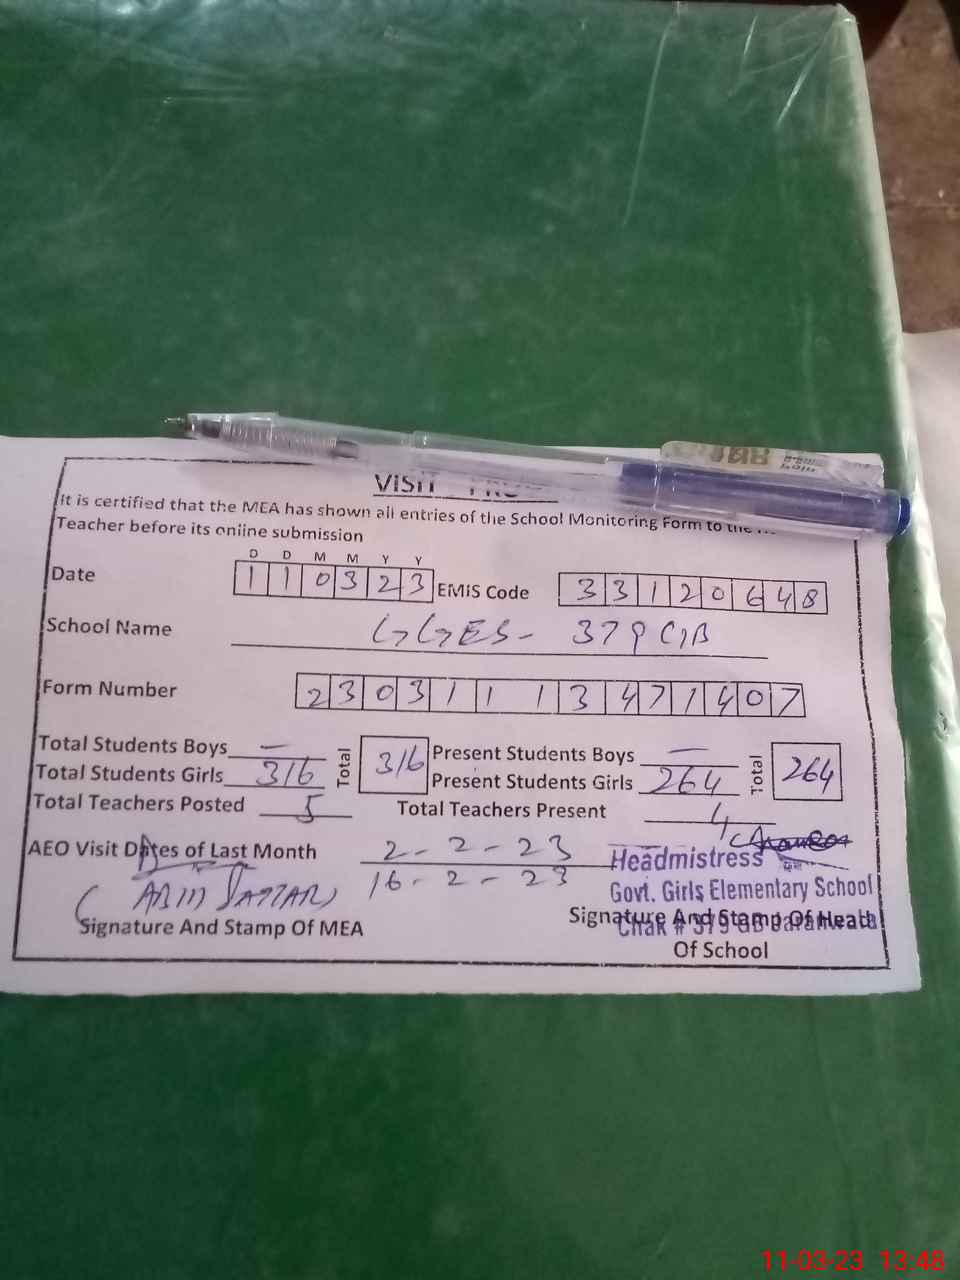 VISIT
It is certified that the MEA has shown all entries of the School Monitoring Form to the
Teacher before its online submission
D D M M Y Y
Date 1 1 0 3 2 3 EMIS Code 3 3 1 2 0 6 4 8
School Name GGES - 379 GB
Form Number 2 3 0 3 1 1 1 3 4 7 1 4 0 7
Total Students Boys — Total 316 Present Students Boys — Total 264
Total Students Girls 316 Present Students Girls 264
Total Teachers Posted 5 Total Teachers Present 4
AEO Visit Dates of Last Month 2 - 2 - 23
16 - 2 - 23
Headmistress
Govt. Girls Elementary School
Chak # 379 GB Jaranwala
Signature And Stamp Of MEA
Signature And Stamp Of Head
Of School
11-03-23 13:48